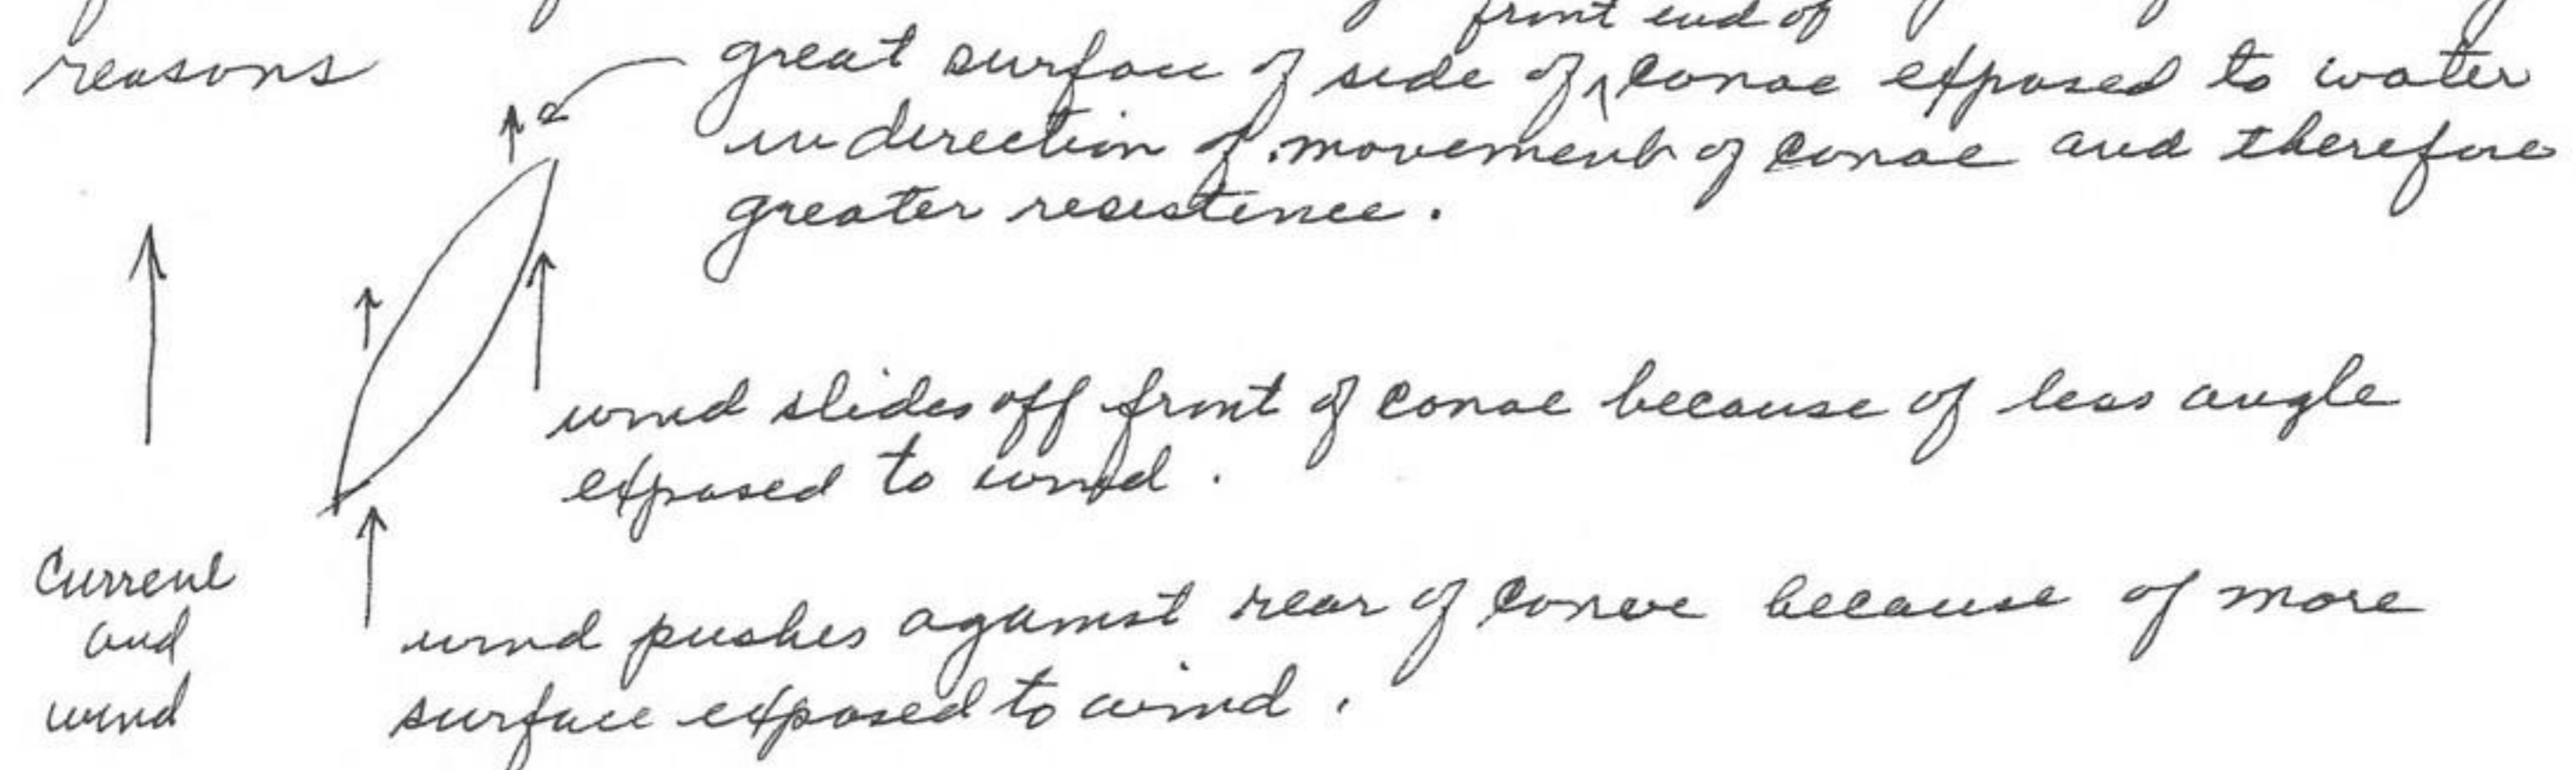 reasons
front end of
great surface of side of ^ canoe exposed to water
in direction of movement of canoe and therefore
greater resistence.
wind slides off front of canoe because of less angle
exposed to wind.
Current
and
wind
wind pushes against rear of canoe because of more
surface exposed to wind.